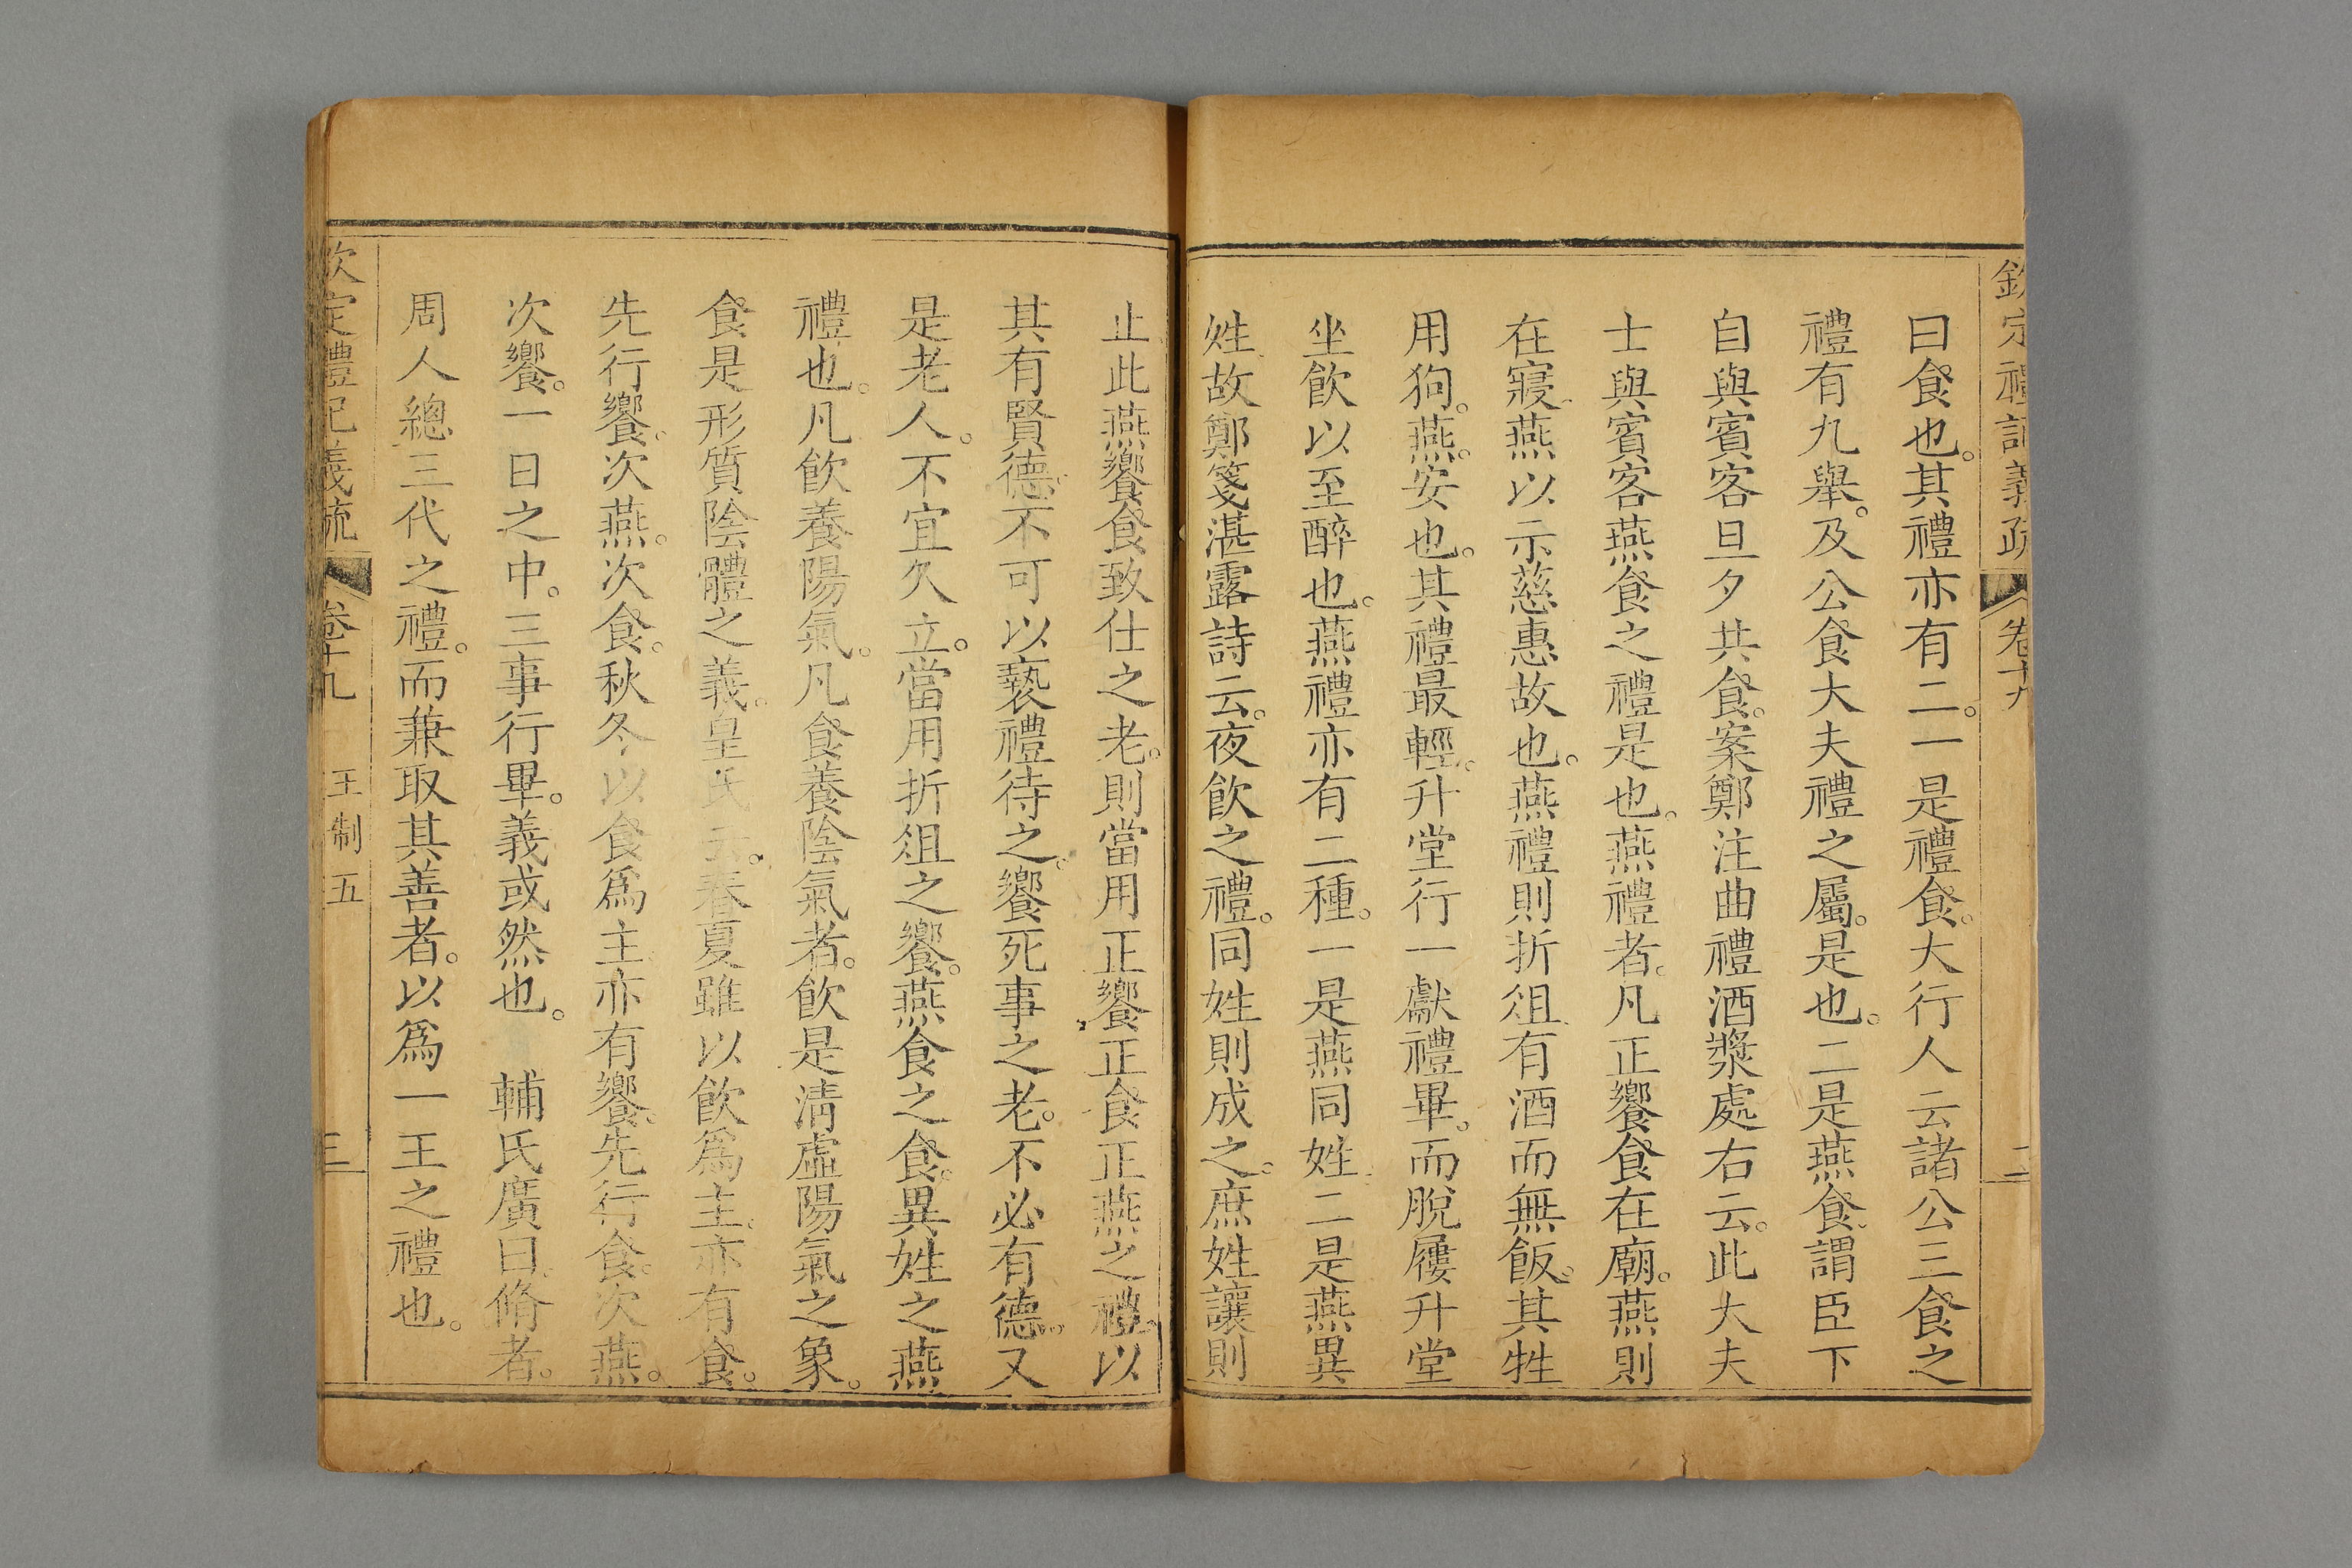 欽定禮記義疏 卷十九 二
曰食也。其禮亦有二。一是禮食。大行人云諸公三食之
禮有九舉。及公食大夫禮之屬。是也。二是燕食謂臣下
自與賓客旦夕共食。案鄭注曲禮酒漿處右云。此大夫
士與賓客燕食之禮是也。燕禮者。凡正饗食在廟。燕則
在寢。燕以示慈惠故也。燕禮則折俎有酒而無飯。其牲
用狗。燕。安也。其禮最輕。升堂行一獻禮畢。而脫屨升堂
坐飲以至醉也。燕禮亦有二種。一是燕同姓。二是燕異
姓。故鄭箋湛露詩云。夜飲之禮。同姓則成之。庶姓讓則
止此燕饗食致仕之老。則當用正饗正食正燕之禮。以
其有賢德。不可以褻禮待之。饗死事之老。不必有德。又
是老人。不宜久立。當用折俎之饗。燕食之食。異姓之燕
禮也。凡飲養陽氣。凡食養陰氣者。飲是清虛陽氣之象。
食是形質陰體之義。皇氏云。春夏雖以飲爲主。亦有食。
先行饗。次燕。次食。秋冬以食爲主。亦有饗。先行食。次燕。
次饗。一日之中。三事行畢。義或然也。 輔氏廣曰。脩者。
周人總三代之禮。而兼取其善者。以爲一王之禮也。
欽定禮記義疏 卷十九 王制五 三